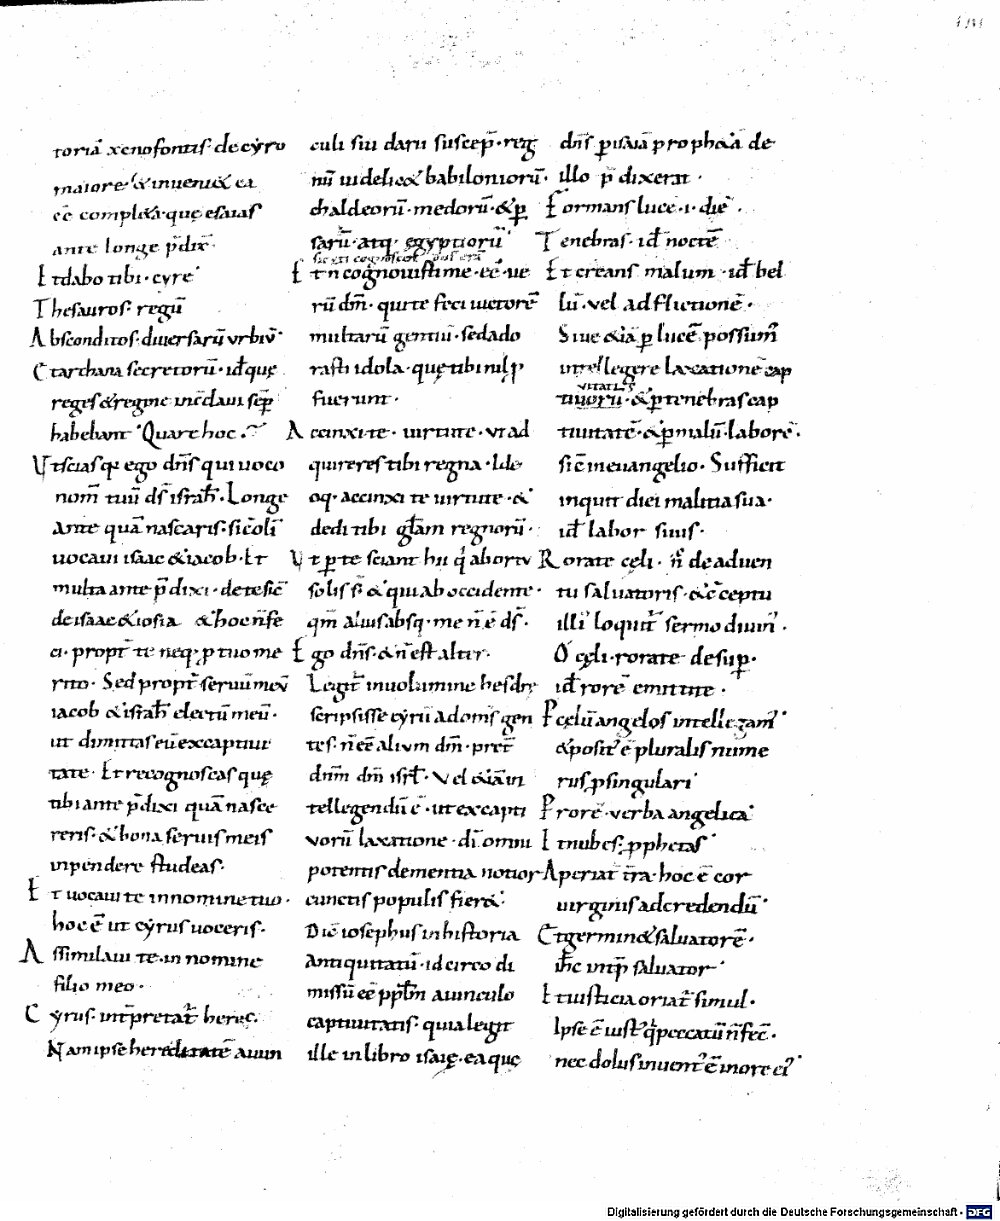 toriā xenofontis de cẏro
maiore & inueni& ea
eē compl&a. quę esaias
ante longe p̄dix̄.
Et dabo tibi. cyre
Thesauros. regū
Absconditos. diuersarū vrbiū.
Et archana secretorū. id̄ quę
reges & regine
habebant. Quare hoc.
Vt scias qꝫ ego dn̄s qui uoco
nom̄ tuū ds̄ israh̄l. Longe
ante quā nascaris. sic̄ oli
uocaui isaac & iacob. Et
multa ante p̄dixi. de te sic̄
de isaac & iosia & hoc n̄ fe
ci. propt̄ te neqꝫ ꝓ tuo me
rito. Sed propt̄ seruū meū
iacob & isrāh electū meū.
ut dimittas eū ex captiui
tate. Et recognoscas quę
tibi ante p̄dixi quā nasce
reris. & bona seruis meis
inpendere studeas.
Et uocaui te in nomine tuo.
hoc ē ut cẏrus uoceris.
Assimilaui te. in nomine
filio meo.
Cẏrus. int̄pretat̄ heres.
Nam ipse hereditatē auun
culi sui darii suscep̄. reg
nū uidelic& babiloniorū.
chaldeorū. medorū. & ꝑ
sarū. atqꝫ egyptiorū
Et n̄ cognouisti me. eē. ue
rū dm̄. qui te feci uictorē
multarū gentiū. sed ado
rasti idola. quę tibi nil ꝓ
fuerunt.
Accinxi te. uirtute. vt ad
quireres tibi regna. Ide
oqꝫ. accinxi te uirtute. &
dedi tibi glām regnorū.
Vt ꝑ te sciant hii q̄ ab ortv
solis st̄ & qui ab occidente.
qm̄ alius absqꝫ. me n̄ ē ds̄.
Ego dn̄s. & n̄ est alter.
Legit̄ in uolumine hesdre
scripsisse cẏrū ad om̄s gen
tes. n̄ eē alivm dm̄. pret̄
dnm̄ dm̄ isrl̄. Vel &iā in
tellegendū ē. ut ex capti
vorū laxatione. dī omni
potentis clementia notior
cunctis populis fier&.
Dic̄ iosephus in historia
antiquitatū. idcirco di
missū eē pplm̄ a uinculo
captiuitatis. quia legit
ille in libro isaię. ea quę
dn̄s ꝑ isaiā proph&ā de
illo p̄dixerat.
Formans lucē. i. diē.
Tenebras. id̄ noctē
Et creans malum. id̄ bel
lū. vel adflictionē.
Siue &iā ꝑ lucē possum
intellegere laxationē cap
tiuorū. & ꝑ tenebras cap
tiuitatē. & ꝑ malū. laborē.
sic̄ in euangelio. Sufficit
inquit diei malitia sua.
id̄ labor suus.
Rorate cęli. n̄c de aduen
tu saluatoris. & c̄ceptu
illi' loquit̄ sermo diuin'.
O cęli. rorate desuꝑ.
id̄ rorē emittite.
P celū angelos intellegam'
& posit' ē pluralis nume
rus ꝓ singulari
P rorē. verba angelica
Et nubes. ꝓphetas
Aperiat t̄ra. hoc ē cor
uirginis ad credendū.
Et germin& saluatorē.
ih̄c int̄p̄ saluator
Et iusticia oriat̄ simul.
Ipse ē iust' q̄ peccatū n̄ fec̄.
nec dolus inuent' ē in ore ei'
Digitalisierung gefördert durch die Deutsche Forschungsgemeinschaft - DFG